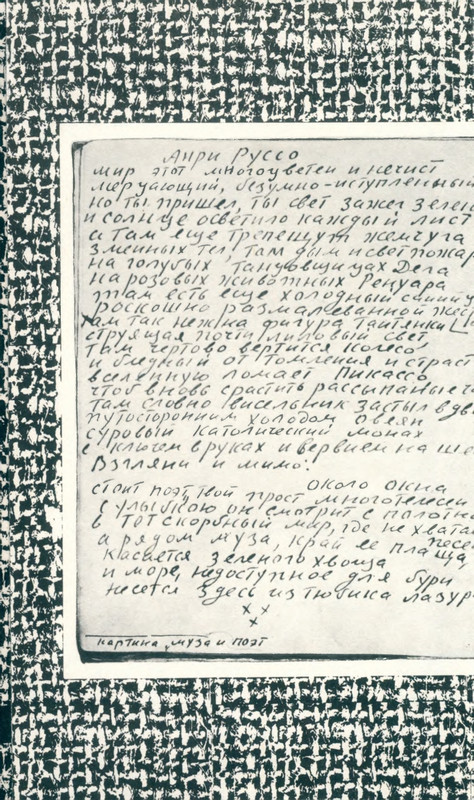 Анри Руссо
мир этот многоцветен и нечист
мерцающий, безумно-исступленный
но ты пришел, ты свет зажег зелен
и солнце осветило каждый лист
а там еще трепещут жемчуга
змеиных тел, там дым и свет пожар
на голубых танцовщицах Дега
на розовых животных Ренуара
там есть еще холодный синий
роскошно размалеванной
там так нежна фигура таитянки
струящая почти лиловый свет
там чертово вертится колесо
и бледный от томления и страст
вселенную ломает Пикассо
чтоб вновь срастить рассыпанные
там словно висельник застыл в
путосторонним холодом овеян
суровый католический монах
с ключем в руках и вервием на ше
Взгляни и мимо!
около окна
стоит поэт, твой прост многотелесен
с улыбкою он смотрит с полотна
в тот скорбный мир, где не хватает
песе
а рядом муза, край ее плаща
касается зеленого хвоща
и море, недоступное для бури
несется здесь из тюбика лазур
x x
x
картина „муза и поэт